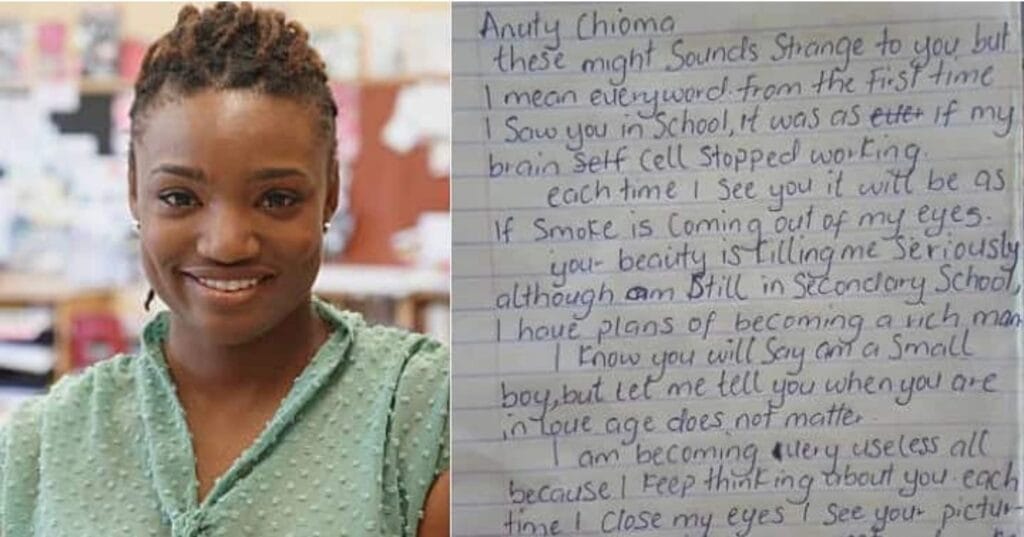 Anuty Chioma
these might Sounds Strange to you but
I mean everyword. from the First time
I Saw you in School, it was as if my
brain Self Cell Stopped working.
each time I See you it will be as
if Smoke is Coming out of my eyes.
your beauty is killing me Seriously
although am Still in Secondary School,
I have plans of becoming a rich man
I know you will Say am a Small
boy, but Let me tell you when you are
in love age does not matter.
I am becoming very useless all
because I Keep thinking about you each
time I close my eyes I see your pictur-